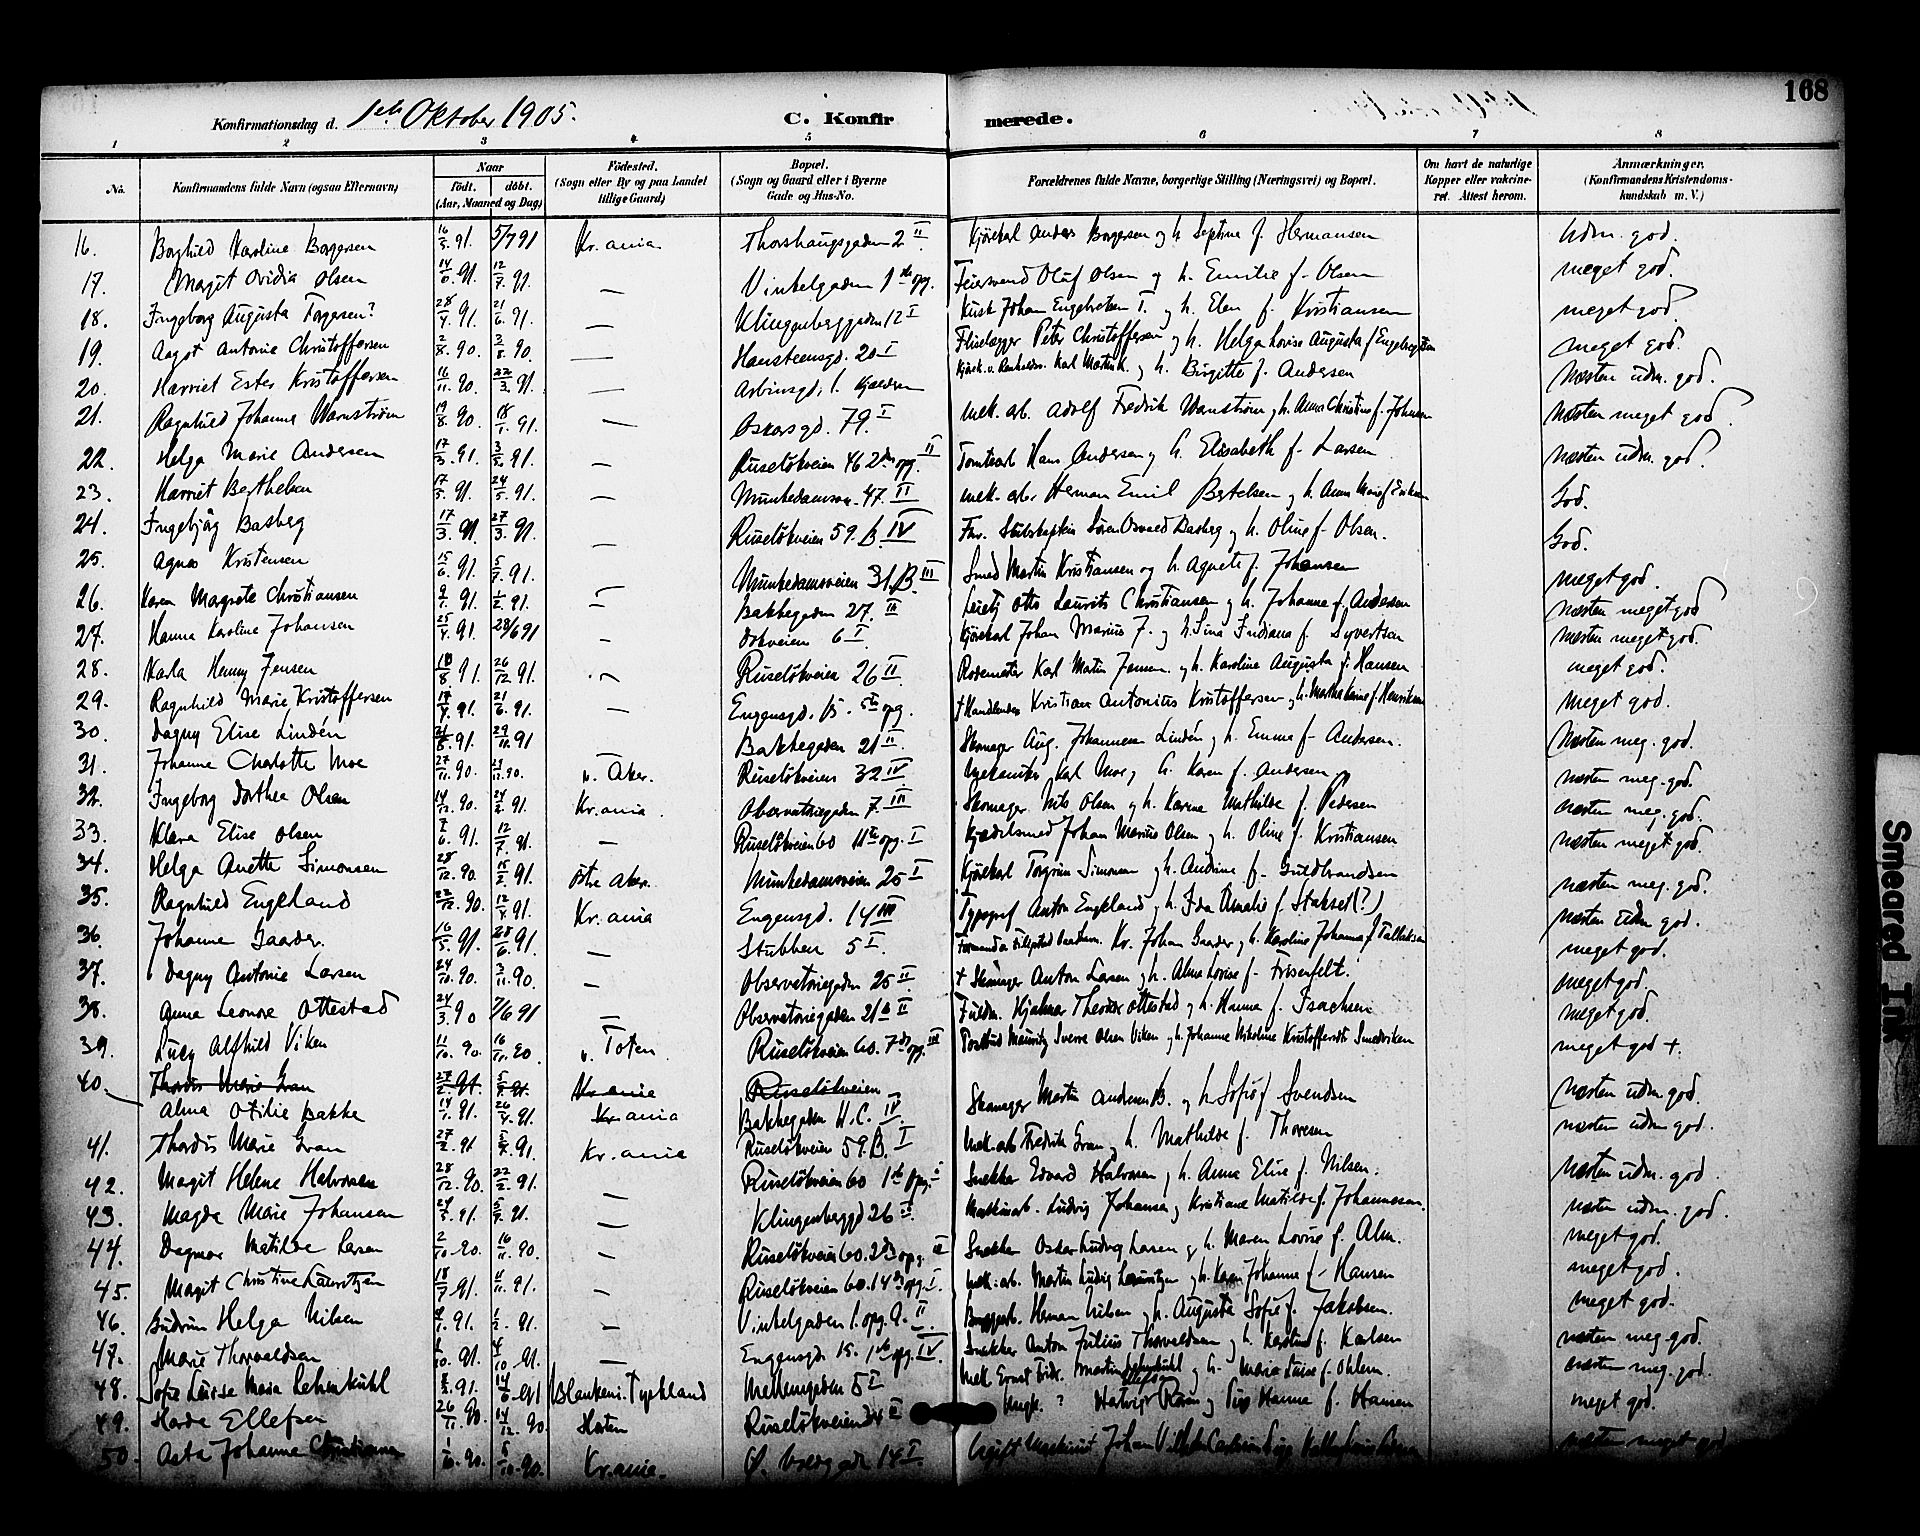 168
Konfirmationsdag d. 1ste Oktober 1905.
C. Konfirmerede.
1 2 3 4 5 6 7 8
No. Konfirmandens fulde Navn (ogsaa Efternavn) Naar født. døbt. (Aar, Maaned og Dag) Fødested. (Sogn eller By og paa Landet tillige Gaard) Bopæl. (Sogn og Gaard eller i Byerne Gade og Hus-No. Forældrenes fulde Navne, borgerlige Stilling (Næringsvei) og Bopæl. Om havt de naturlige Kopper eller vaccineret. Attest herom. Anmærkninger. (Konfirmandens Kristendomskundskab m. V.)
16. Borghild Karoline Borgersen 16/5 91. 5/7 91 Kr.ania Thorshaugsgaden 2 II Kjørekarl Anders Borgersen og h. Septine f. Hermansen Udm. god.
17. Margit Ovidia Olsen 14/6. 91. 12/7. 91. — Vinkelgaden 1ste opg. Feiersvend Oluf Olsen og h. Emilie f. Olsen meget god.
18. Ingeborg Augusta Torgersen? 28/4. 91. 21/6. 91. — Klingenberggaden 12 I Kusk Johan Engebretsen T. og h. Elen f. Kristiansen meget god.
19. Aagot Antonie Christoffersen 2/8. 90. 3/8. 90. — Hansteensgd. 20 I Fliselægger Peter Christoffersen og h. Helga Lovise Augusta f. meget god.
20. Harriet Ester Kristoffersen 16/11. 90. 22/3. 91. — Arbinsgd. 1. Kjælderen Karl Martin K. og h. Birgitte f. Andersen Næsten udm. god.
21. Ragnhild Johanne Wanstrøm 19/8. 90 18/1. 91. — Oscarsgd. 79. I Mek. arb. Adolf Fredrik Wanstrøm og h. Anna Christine f. Johnsen Næsten meget god
22. Helga Marie Andersen 17/3. 91. 3/5. 91. — Ruseløkveien 46 2den opg. II Tomtearb Hans Andersen og h. Elisabeth f. Larsen Næsten udm. god.
23. Harriet Berthelsen 17/3. 91. 24/5. 91. — Munkedamsv. 47. II Mek. arb. Herman Emil Bertelsen og h. Anna Marie f. God.
24. Ingebjørg Basberg 17/3. 91. 27/3. 91. — Ruseløkveien 59. B. IV Fhv. Søren Osvald Basberg og h. Oline f. Olsen. God.
25. Agnes Kristensen 15/6. 91. 5/7. 91. Munkedamsveien 31. B III Smed Martin Kristiansen og h. Agnete f. Johansen meget god.
26. Karen Magrete Christiansen 9/1. 91. 1/2. 91. — Bakkegaden 27. III Otto Laurits Christiansen og h. Johanne f. Andersen næsten meget god
27. Hanna Karoline Johansen 25/4. 91. 28/6 91 — Dokveien 6 I Kjørekarl Johan Marius J. og h. Lina Indiana f. Syvertsen næsten meget god.
28. Karla Henny Jensen 18/8 91. 26/12 91. — Ruseløkveien 26 II Rodemester Karl Martin Jensen og h. Karoline Augusta f. Hansen meget god.
29. Ragnhild Marie Kristoffersen 17/4. 91. 21/6. 91. — Engensgd. 15. 5te opg. † Handlende Kristian Antonius Kristoffersen og h. Martha f. Henriksen meget god.
30. Dagny Elise Lindén 21/8. 91. 29/11. 91 Bakkegaden 21 II Skomager Aug. Johannesen Lindén og h. Emma f. Andersen. Næsten meg. god.
31. Johanne Charlotte Moe 27/11. 90. v. Aker. Ruseløkveien 32 IV Mekaniker Karl Moe og h. Karen f. Andersen næsten meg. god.
32. Ingeborg Dorthea Olsen 14/12. 90. 24/2. 91. Kr.ania. Observatoriegaden 7. III Skomager Nils Olsen og h. Karine Mathilde f. Pedersen næsten meg. god.
33. Klara Elise Olsen 7/6. 91. 12/7. 91. — Ruseløkveien 60 11te opg. I Kjædelsmed Johan Marius Olsen og h. Oline f. Kristiansen næsten meget god.
34. Helga Anette Simonsen 28/12. 90. 15/2. 91. østre Aker. Munkedamsveien 25 I Kjørekarl Torgrim Simonsen og h. Andrine f. Guldbrandsen næsten meg. god.
35. Ragnhild Engeland 22/12. 90. 12/4 91. Kr.ania Engensgd. 14 III Typograf Anton Engeland og h. Ida Amalie f. Stakset (?) næsten udm god.
36. Johanne Gaarder. 16/5. 91. 28/6. 91. — Stubben 5 I. Kr. Johan Gaarder og h. Karoline Johanne f. meget god.
37. Dagny Antonie Larsen 24/10. 90. 3/11. 90. — Observatoriegaden 25 II † Skomager Anton Larsen og h. Alma Lovise f. Frisenfelt. meget god.
38. Anna Leonore Ottestad 24/3. 90 7/6 91 — Observatoriegaden 21 II Fuldm. Hjalmar Theodor Ottestad og h. Hanna f. Isachsen meget god.
39. Lucy Alfhild Viken 11/10. 90. 16/11. 90 v. Toten. Ruseløkveien 60. 7de opg. III Postbud Mauritz Sverre Olsen Viken og h. Johanne Nikoline Kristoffersdt Smedviken meget god +.
40. Thordis Marie Gran 27/2. 91. 5/4. 91. Kr.ania Ruseløkveien
Alma Otilie Bakke 14/1. 91. 26/4. 91. Kr.ania Bakkegaden 11. C. IV. Skomager Martin Andersen B. og h. Sofie f. Svendsen næsten udm god.
41. Thordis Marie Gran 27/2. 91 5/4. 91. Kr.ania Ruseløkveien 59. B. I Mek. arb Fredrik Gran og h. Mathilde f. Thoresen næsten udm god.
42. Margit Helene Halvorsen 28/12. 90. 22/2. 91. — Ruseløkveien 60 1ste opg. I Snekker Edvard Halvorsen og h. Anna Elise f. Nilsen. Næsten udm. god
43. Magda Marie Johansen 24/5. 91. 5/7. 91. — Klingenberggd 26 II Maskinarb. Ludvig Johansen og Kristiane Matilde f. Johannessen. næsten udm. god.
44. Dagmar Matilde Larsen 2/10. 90. 16/11. 90. — Ruseløkveien 60. 2den opg. II Snekker Oskar Ludvig Larsen og h. Maren Lovise f. Alm. meget god.
45. Margit Christine Lauritzen 18/7. 91. 11/11. 91. — Ruseløkveien 60. 14de opg. I. Mek. arb. Martin Ludvig Lauritzen og h. Karen Johanne f. Hansen meget god.
46. Gudrun Helga Nilsen 4/1. 91. 1/2. 91. — Vinkelgaden 1. opg. 9. II Herman Nilsen og h. Augusta Sofie f. Jakobsen. meget god.
47. Marie Thorvaldsen 91. 4/10 91. — Engensgd. 15. 1ste opg. IV. Snekker Anton Julius Thorvaldsen og h. Karoline f. Karlsen næsten meg. god.
48. Sofie Luise Maria Lehmkuhl 91. 14/6. 91 Blankeni. Tyskland Mellemgaden 5 I Mek Ernst Lehmkuhl og h. Maria Luise f. Ohlen. næsten meg. god.
49. Ellefsen 26/11. 90. 14/12. 90 Horten Ruseløkveien 34 II Hanna f. Hansen meget god.
50. Asta Johanne Christiansen 90. 5/10. 90. Kr.ania. 14 I Ugift Maskinist Johan næsten meget god
Smeared Ink